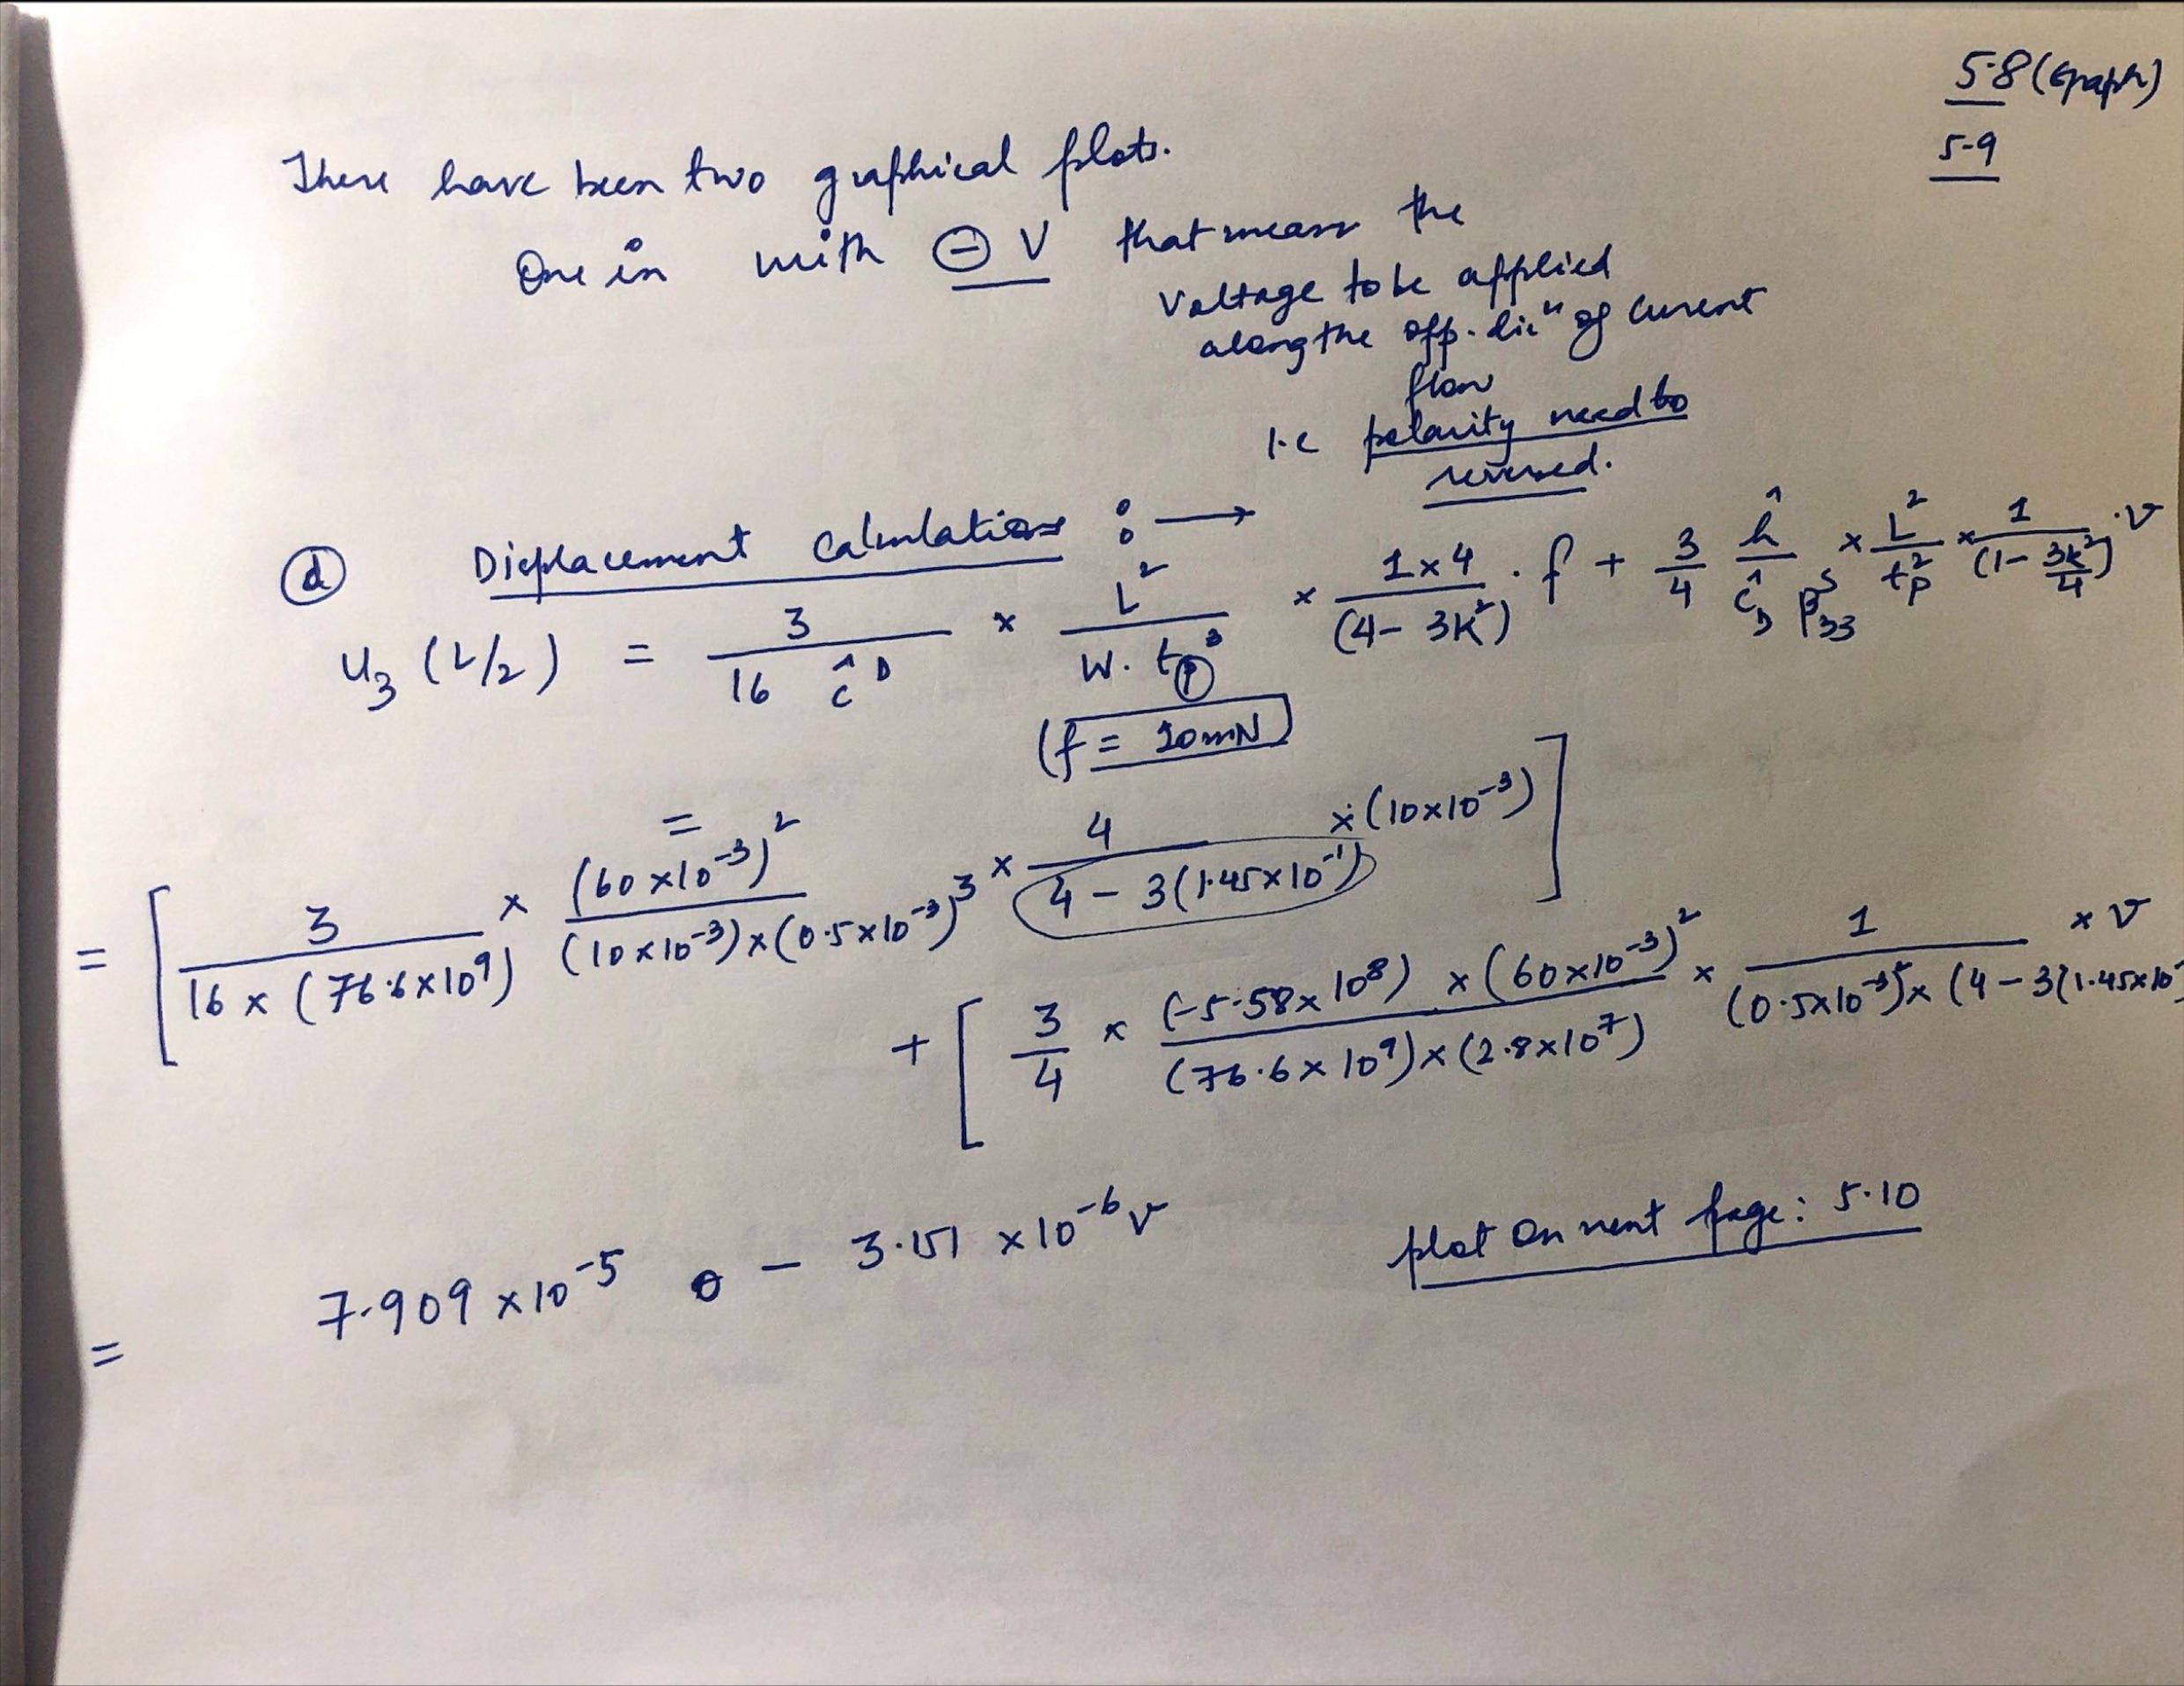 5.8 (Graph)
5-9
There have been two graphical plots.
One in with ⊖ V that means the
voltage to be applied
along the opp. dirⁿ of current
flow
i.e polarity need to
reversed.
ⓓ Displacement Calculations : →
u₃ (L/2) = 3/(16 ĉᴰ) × L²/(W. tₚ³) × (1×4)/(4-3k²) . f + 3/4 ĥ/(ĉᴰ β₃₃ˢ) × L²/tₚ² × 1/(1-3k²/4) . v
(f = 10mN)
=
= [ 3/(16 × (76.6×10⁹)) × (60×10⁻³)²/((10×10⁻³)×(0.5×10⁻³)³) × 4/(4-3(1.45×10⁻¹)) × (10×10⁻³) ]
+ [ 3/4 × (-5.58×10⁸) × (60×10⁻³)²/((76.6×10⁹)×(2.8×10⁷)) × 1/((0.5×10⁻³)²×(4-3(1.45×10 × v
= 7.909 ×10⁻⁵ - 3.151 ×10⁻⁶ v
plot on next page: 5.10